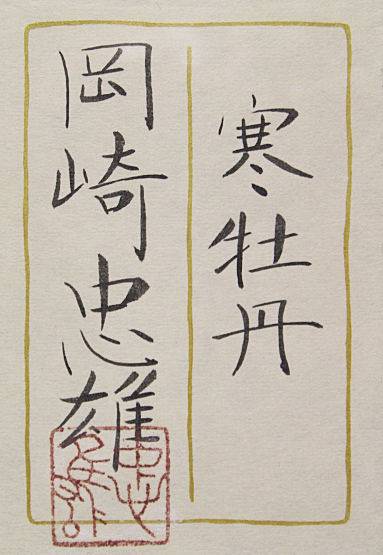 寒牡丹
岡崎忠雄